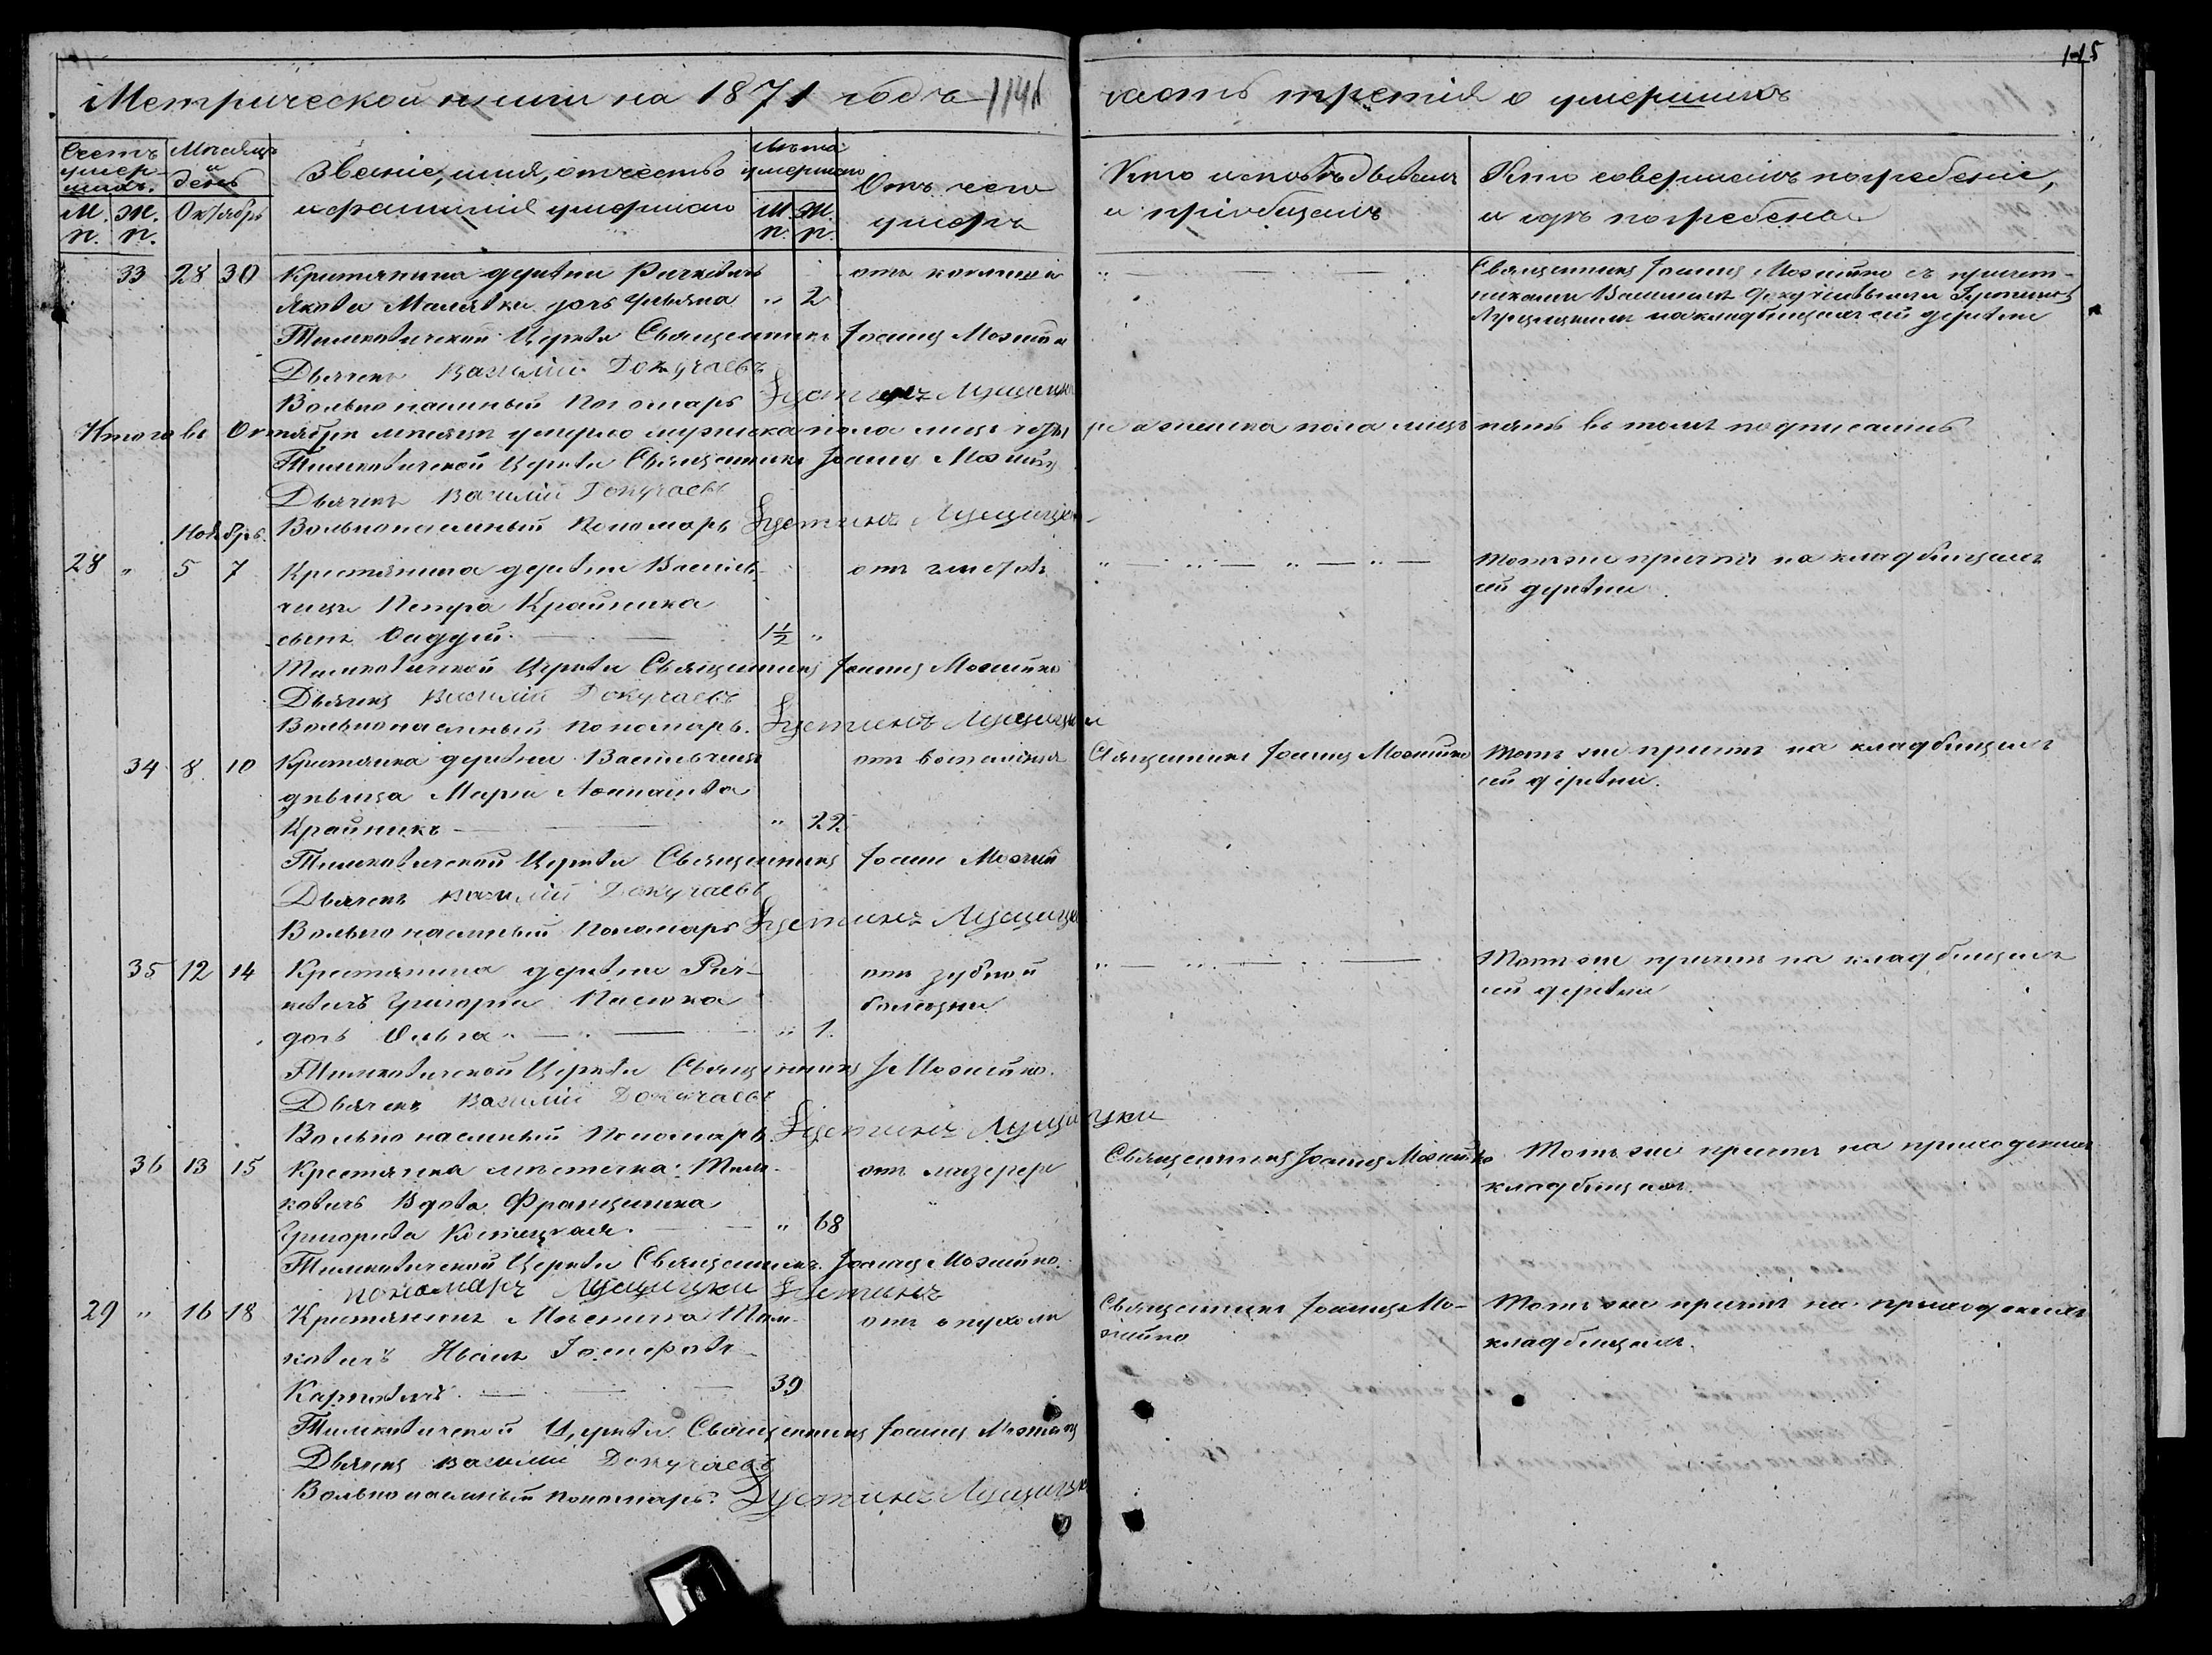 145
Метрической книги на 1871 годъ
часть третія о умершихъ
Счетъ умер-шихъ.
Мѣсяцъ и день
Званіе, имя, отчество
и фамилія умершаго
Лѣта умершаго
Отъ чего
умеръ
Кто исповѣдывалъ
и пріобщалъ
Кто совершалъ погребеніе,
и гдѣ погребены
М. п. Ж. п. Октябрь М. п. Ж. п.
33 28 30 Крестьянина деревни
Якова дочь Ульяна " 2
отъ коклюша
Священникъ Іоаннъ Можейко съ причет-
никами Василіемъ Докучаевымъ и Іустиномъ
Лущицкимъ на кладбищѣ сей деревни
Тимковичской Церкви Священникъ Іоаннъ Можейко
Дьячекъ Василій Докучаевъ
Вольнонаемный Пономарь Іустинъ Лущицки
Итого въ Октябрѣ мѣсяцѣ умерло мужеска пола женска пола лицъ пять въ томъ подписались
Тимковичской Церкви Священникъ Іоаннъ Можейко
Дьячекъ Василій Докучаевъ
Ноябрь. Вольнонаемный Пономарь Іустинъ Лущицки
28 " 5 7 Крестьянина деревни
Петра Крайника
сынъ Фаддей 1½ "
Тотъ же причтъ на кладбищѣ
сей деревни
Тимковичской Церкви Священникъ Іоаннъ Можейко
Дьячекъ Василій Докучаевъ
Вольнонаемный Пономарь. Іустинъ Лущицки
34 8 10 Крестьянка деревни
дѣвица Марія
Крайникъ " 22
отъ воспаленія
Священникъ Іоаннъ Можейко
Тотъ же причтъ на кладбищѣ
сей деревни.
Тимковичской Церкви Священникъ Іоаннъ Можейко
Дьячекъ Василій Докучаевъ
Вольнонаемный Пономарь Іустинъ Лущицки
35 12 14 Крестьянина деревни
Григорія
дочь Ольга " 1.
отъ зубной
болѣзни
Тотъ же причтъ на кладбищѣ
сей деревни
Тимковичской Церкви Священникъ І Можейко.
Дьячекъ Василій Докучаевъ
Вольнонаемный Пономарь Іустинъ Лущицки
36 13 15 Крестьянка мѣстечка Тим-
ковичъ Вдова Францишка
Григорьева " 68
Священникъ Іоаннъ Можейко
Тотъ же причтъ на приходскомъ
кладбищѣ.
Тимковичской Церкви Священникъ Іоаннъ Можейко
пономарь Лущицки Іустинъ
29 " 16 18 Крестьянинъ Мѣстечка Тим-
ковичъ Иванъ Іосифовъ
Карповичъ 39
отъ опухоли
Священникъ Іоаннъ Мо-
жейко
Тотъ же причтъ на приходскомъ
кладбищѣ.
Тимковичской Церкви Священникъ Іоаннъ Можейко
Дьячекъ Василій Докучаевъ
Вольнонаемный пономарь: Іустинъ Лущицки